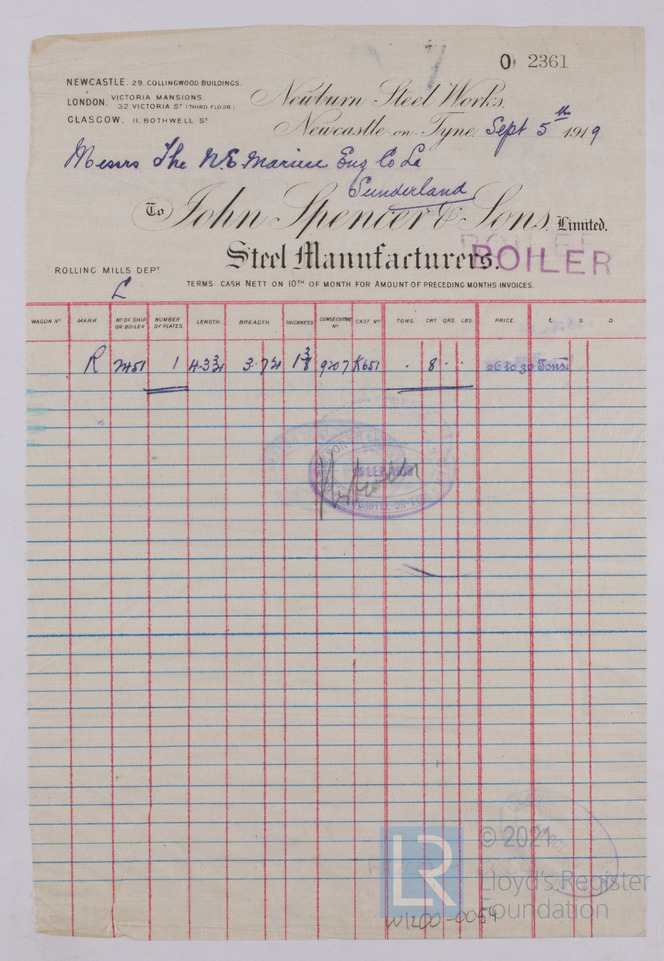 O 2361
NEWCASTLE. 29. COLLINGWOOD BUILDINGS.
LONDON. VICTORIA MANSIONS.
32. VICTORIA ST (THIRD FLOOR)
GLASGOW, 11. BOTHWELL ST
Newburn Steel Works,
Newcastle-on-Tyne, Sept 5th 1919
Messrs The N.E. Marine Eng Co Ld
Sunderland
To John Spencer & Sons, Limited.
Steel Manufacturers.
BOILER
ROLLING MILLS DEPT
L
TERMS CASH NETT ON 10TH OF MONTH FOR AMOUNT OF PRECEDING MONTHS INVOICES.
WAGON No MARK No OF SHIP OR BOILER NUMBER OF PLATES LENGTH BREADTH THICKNESS CONSECUTIVE No CAST No TONS. CWT QRS. LBS. PRICE. £. S. D.
R 2451 1 4.3 3/4 3.7 3/4 1 3/8 9207 K651 . 8 . . 26 to 30 Tons.
© 2021
LR Lloyd's Register
Foundation
W1200-0054